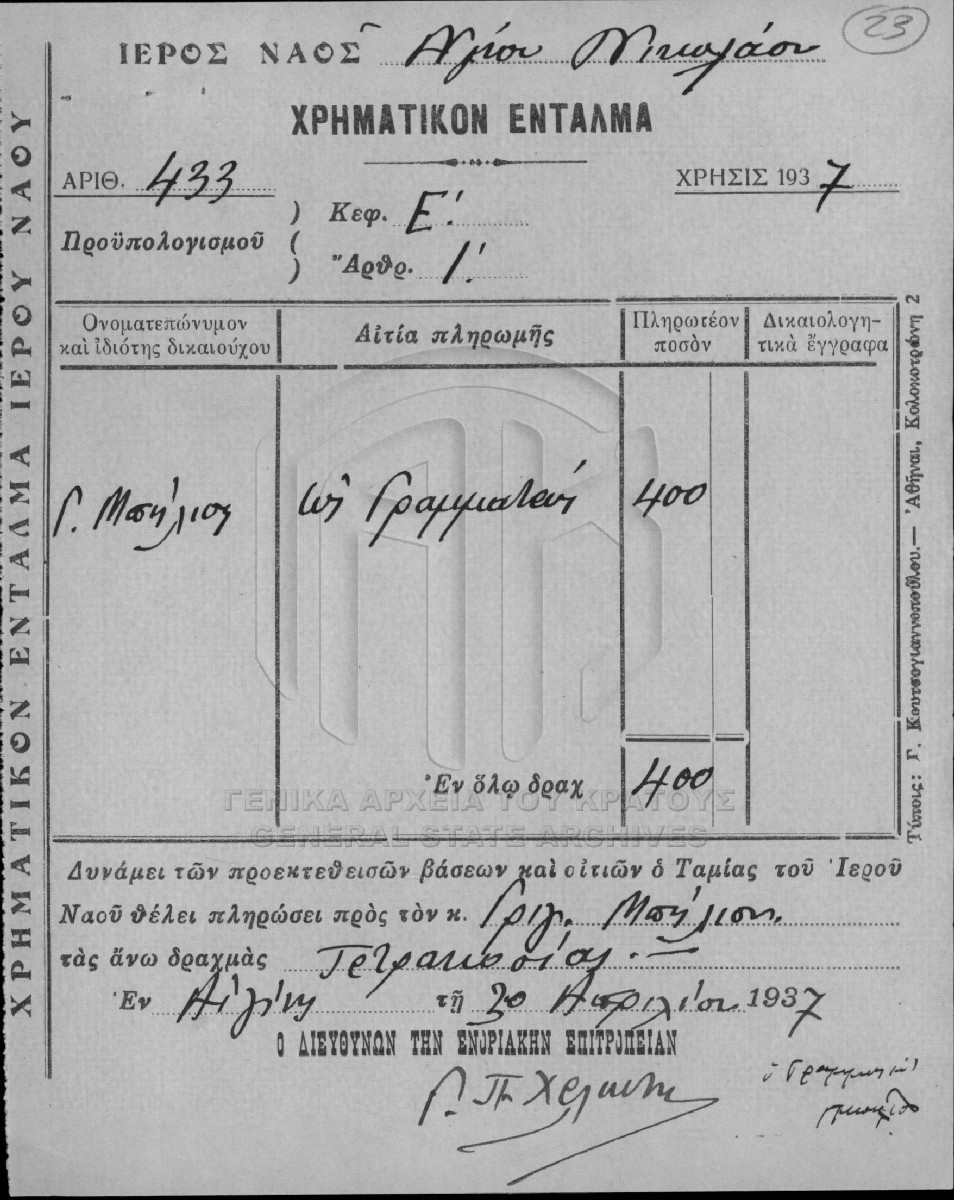 23
ΙΕΡΟΣ ΝΑΟΣ Αγίου Νικολάου
ΧΡΗΜΑΤΙΚΟΝ ΕΝΤΑΛΜΑ
ΑΡΙΘ. 433
ΧΡΗΣΙΣ 1937
Προϋπολογισμοῦ
Κεφ. Ε'.
Ἄρθρ. 1'.
Ὀνοματεπώνυμον καὶ ἰδιότης δικαιούχου
Αἰτία πληρωμῆς
Πληρωτέον ποσὸν
Δικαιολογητικὰ ἔγγραφα
Γ. Μπήλιον ὡς Γραμματεύς 400
Ἐν ὅλῳ δραχ 400
ΓΕΝΙΚΑ ΑΡΧΕΙΑ ΤΟΥ ΚΡΑΤΟΥΣ
GENERAL STATE ARCHIVES
Δυνάμει τῶν προεκτεθεισῶν βάσεων καὶ αἰτιῶν ὁ Ταμίας τοῦ Ἱεροῦ
Ναοῦ θέλει πληρώσει πρὸς τὸν κ. Γρηγ. Μπήλιον.
τὰς ἄνω δραχμὰς Τετρακοσίας.
Ἐν Αἰγίνῃ τῇ 30 Απριλίου 1937
Ο ΔΙΕΥΘΥΝΩΝ ΤΗΝ ΕΝΟΡΙΑΚΗΝ ΕΠΙΤΡΟΠΕΙΑΝ
ὁ Γραμματεύς
ΧΡΗΜΑΤΙΚΟΝ ΕΝΤΑΛΜΑ ΙΕΡΟΥ ΝΑΟΥ
Τύποις: Γ. Κουτσογιαννοπούλου.— Ἀθῆναι, Κολοκοτρώνη 2